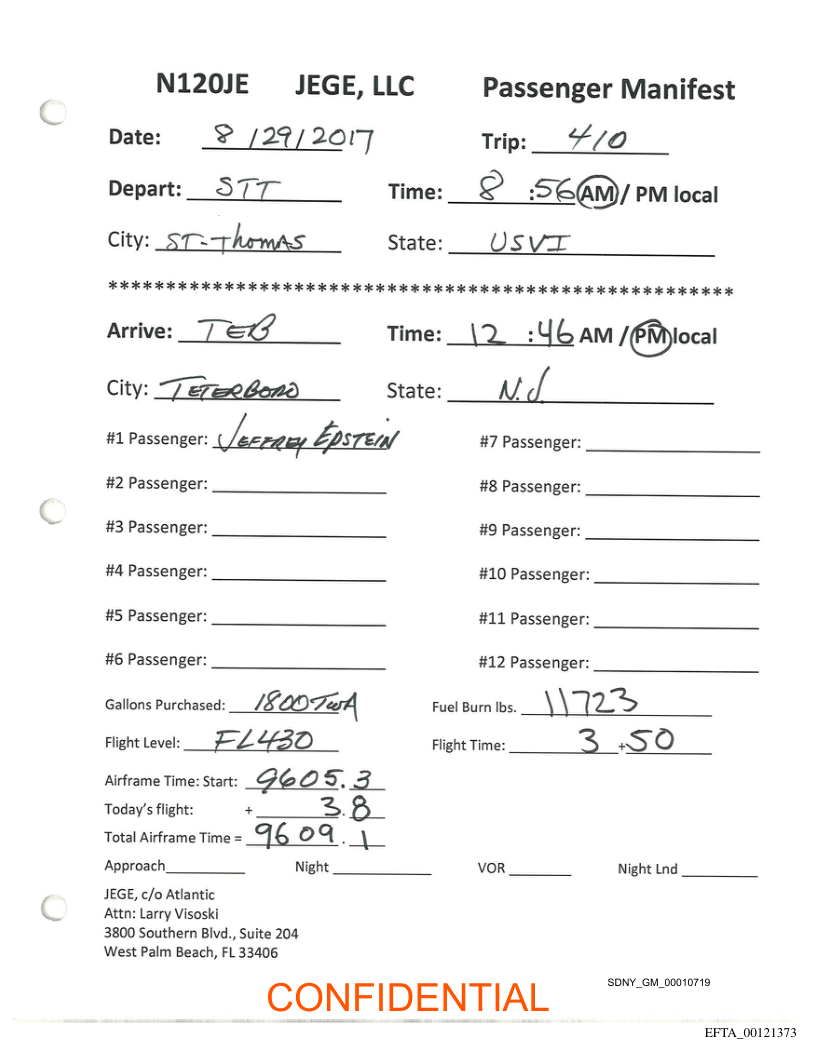 N120JE JEGE, LLC Passenger Manifest
Date: 8/29/2017 Trip: 410
Depart: STT Time: 8:56 AM / PM local
City: ST-Thomas State: USVI
******************************************************
Arrive: TEB Time: 12:46 AM / PM local
City: TETERBORO State: N.J
#1 Passenger: JEFFREY EPSTEIN #7 Passenger:
#2 Passenger: #8 Passenger:
#3 Passenger: #9 Passenger:
#4 Passenger: #10 Passenger:
#5 Passenger: #11 Passenger:
#6 Passenger: #12 Passenger:
Gallons Purchased: 1800 TWA Fuel Burn lbs. 11723
Flight Level: FL430 Flight Time: 3 + 50
Airframe Time: Start: 9605.3
Today's flight: + 3.8
Total Airframe Time = 9609.1
Approach Night VOR Night Lnd
JEGE, c/o Atlantic
Attn: Larry Visoski
3800 Southern Blvd., Suite 204
West Palm Beach, FL 33406
SDNY_GM_00010719
CONFIDENTIAL
EFTA_00121373